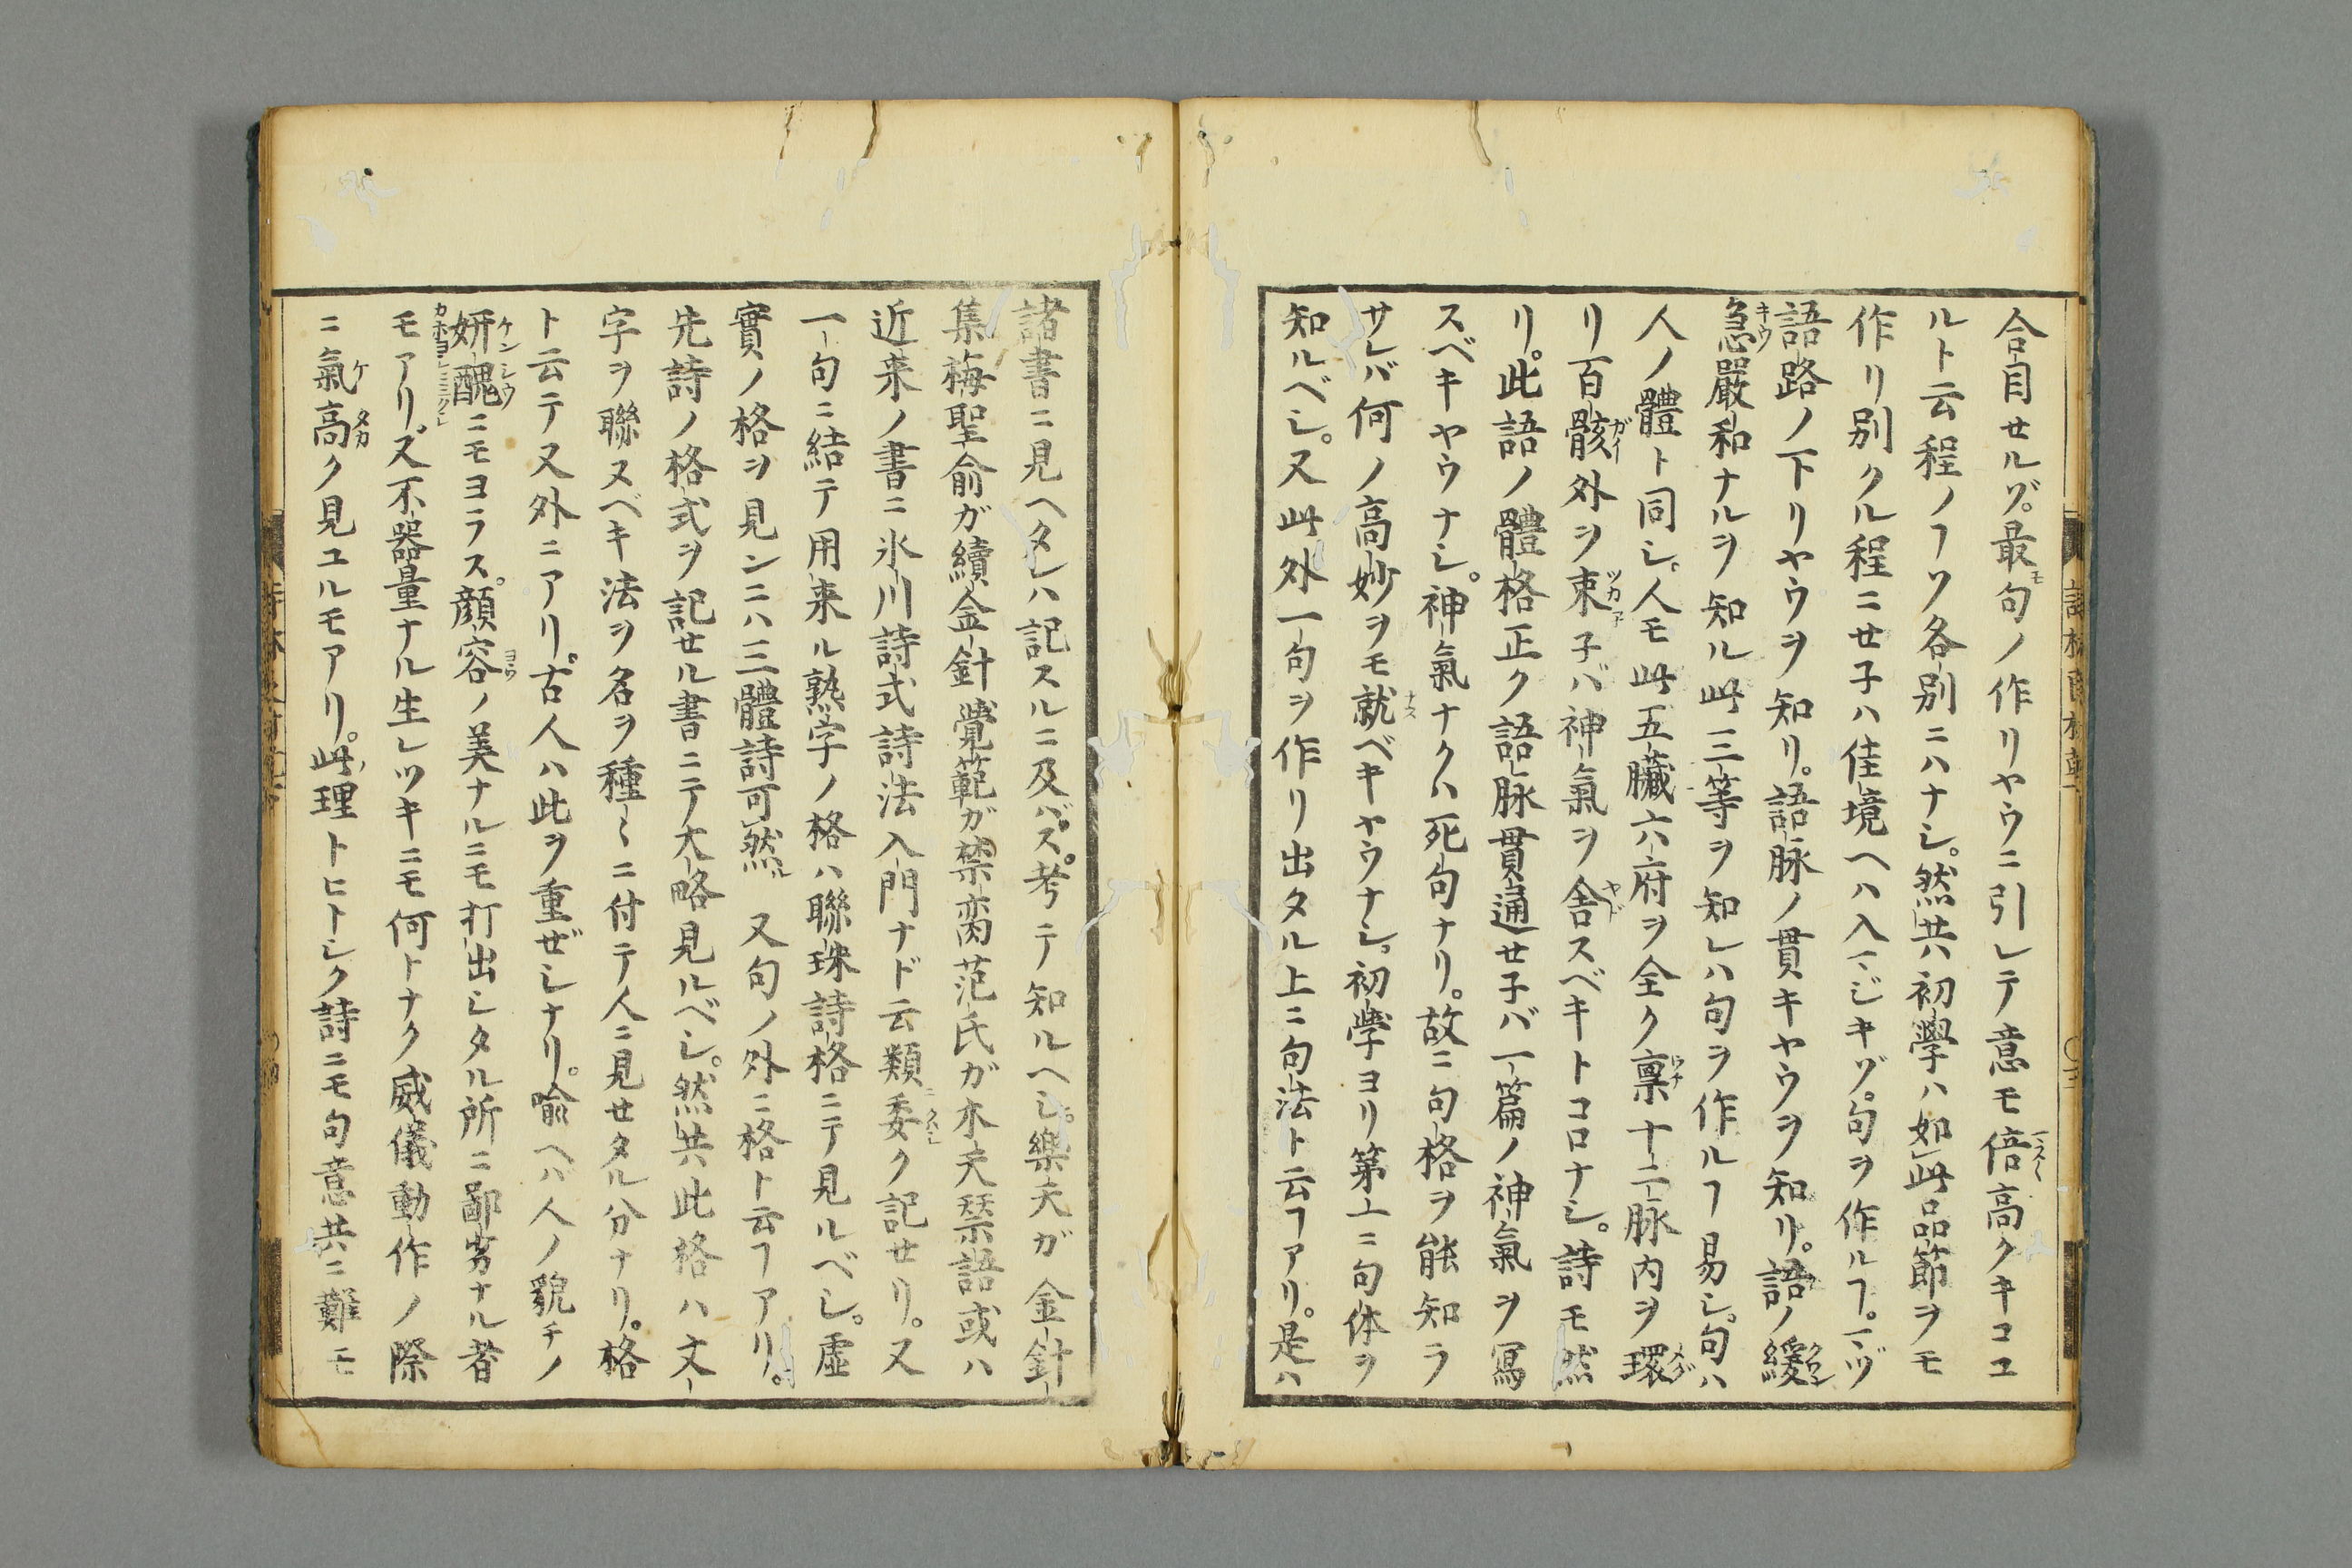 合目セルヅ。最句ノ作リヤウニ引レテ意モ倍高クキコユ
ルト云程ノヿワ各別ニハナシ。然共ハ初學ハ如此品節ヲモ
作リ別クル程ニセ子ハ佳境ヘハ入マジキゾ。句ヲ作ルヿ。マヅ
語路ノ下リヤウヲ知リ。語脉ノ貫キヤウヲ知リ。語ノ緩
急嚴和ナルヲ知ル此三等ヲ知レハ句ヲ作ルヿ易シ。句ハ
人ノ體ト同シ。人モ此五臟六府ヲ全ク禀十二脉内ヲ環
リ百骸外ヲ束子バ神氣ヲ舎スベキトコロナシ。詩モ然
リ。此語ノ體格正ク語脉貫通セ子バ一篇ノ神氣ヲ冩
スベキヤウナシ。神氣ナクハ死句ナリ。故ニ句格ヲ能知ラ
サレバ何ノ高妙ヲモ就ベキヤウナシ。初學ヨリ第一ニ句体ヲ
知ルベシ。又此外一句ヲ作リ出タル上ニ句法ト云ヿアリ。是ハ
諸書ニ見ヘタレハ記スルニ及バス。考テ知ルヘシ。樂天ガ金針
集梅聖俞ガ續金針覺範ガ禁臠范氏ガ木天禁語或ハ
近来ノ書ニ氷川詩式詩法入門ナド云類委ク記セリ。又
一句ニ結テ用来ル熟字ノ格ハ聯珠詩格ニテ見ルベシ。虚
實ノ格ヲ見ンニハ三體詩可然 又句ノ外ニ格ト云ヿアリ。
先詩ノ格式ヲ記セル書ニテ大略見ルベシ。然共此格ハ文
字ヲ聯ヌベキ法ヲ名ヲ種〻ニ付テ人ニ見セタル分ナリ。格
ト云テ又外ニアリ。古人ハ此ヲ重ゼシナリ。喩ヘハ人ノ貌チノ
妍醜ニモヨラス。顔容ノ美ナルニモ打出シタル所ニ鄙劣ナル者
モアリ。又不器量ナル生レツキニモ何トナク威儀動作ノ際
ニ氣高ク見ユルモアリ。此理トヒトシク詩ニモ句意共ニ難モ